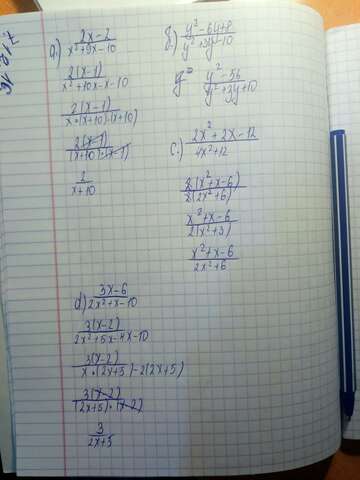 x² 1 e. 16
a.) (2x-2)/(x²+9x-10)
(2(x-1))/(x²+10x-x-10)
(2(x-1))/(x•(x+10)-(x+10))
(2(x-1))/((x+10)•(x-1))
2/(x+10)
b) (y²-6y+8)/(y²+3y-10)
(y²-56)/(y²+3y+10)
c.) (2x²+2x-12)/(4x²+12)
(2(x²+x-6))/(2(2x²+6))
(x²+x-6)/(2(x²+3))
(x²+x-6)/(2x²+6)
d) (3x-6)/(2x²+x-10)
(3(x-2))/(2x²+5x-4x-10)
(3(x-2))/(x•(2x+5)-2(2x+5))
(3(x-2))/((2x+5)•(x-2))
3/(2x+5)